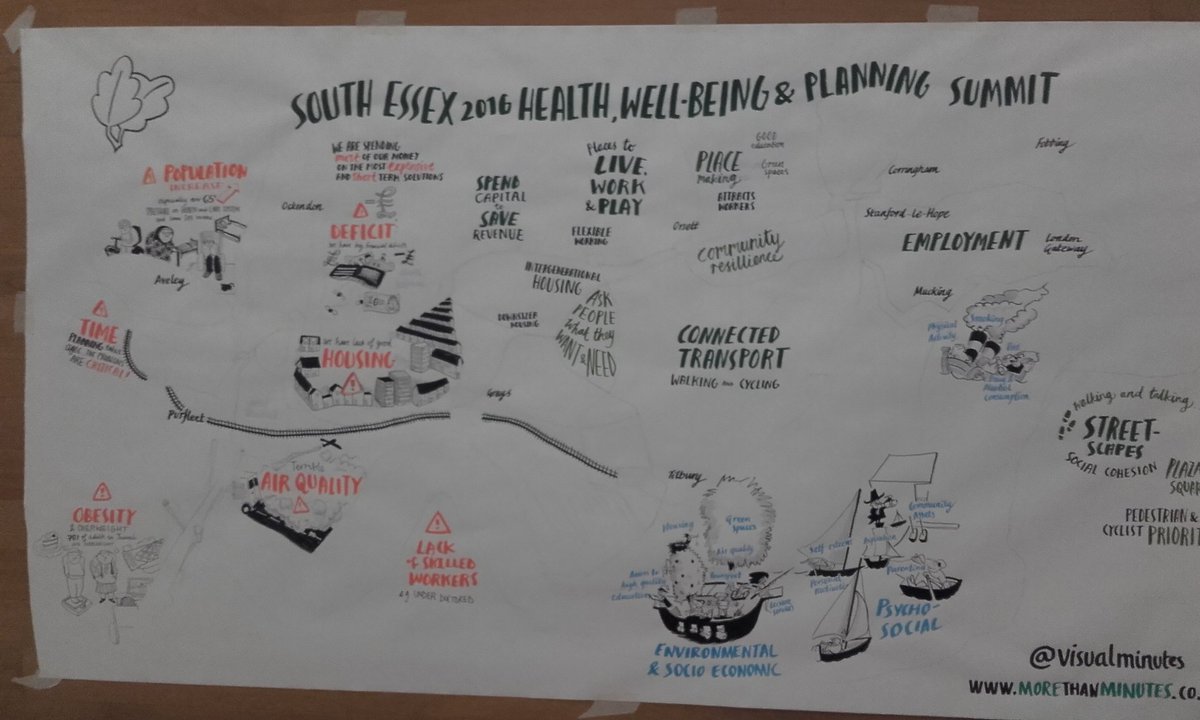 SOUTH ESSEX 2016 HEALTH, WELL-BEING & PLANNING SUMMIT
POPULATION
INCREASE
especially over 65s
Aveley
Ockendon
WE ARE SPENDING
most OF OUR MONEY
ON THE MOST expensive
AND short TERM SOLUTIONS
£
DEFICIT
we have big financial deficits
SPEND
CAPITAL
to
SAVE
REVENUE
Places to
LIVE,
WORK
& PLAY
FLEXIBLE
WORKING
PLACE
making
ATTRACTS
WORKERS
GOOD
education
Green
spaces
Orsett
community
resillience
Corringham
Fobbing
Stanford-le-Hope
EMPLOYMENT
London
Gateway
Mucking
Smoking
Physical
Activity
Diet
Alcohol
Consumption
INTERGENERATIONAL
HOUSING
DOWNSIZER
HOUSING
ASK
PEOPLE
What they
WANT & NEED
CONNECTED
TRANSPORT
WALKING AND CYCLING
TIME
PLANNING
ARE CRITICAL!
we have lack of good
HOUSING
Purfleet
Grays
Terrible
AIR QUALITY
OBESITY
& OVERWEIGHT
LACK
of SKILLED
WORKERS
eg UNDER DOCTORED
Tilbury
Housing
Green
spaces
Air quality
Access to
high quality
education
Transport
ENVIRONMENTAL
& SOCIO ECONOMIC
Community
Assets
Self esteem
Parenting
PSYCHO-
SOCIAL
Walking and talking
STREET-
SCAPES
SOCIAL COHESION
PEDESTRIAN &
CYCLIST
@visualminutes
WWW.MORETHANMINUTES.CO.